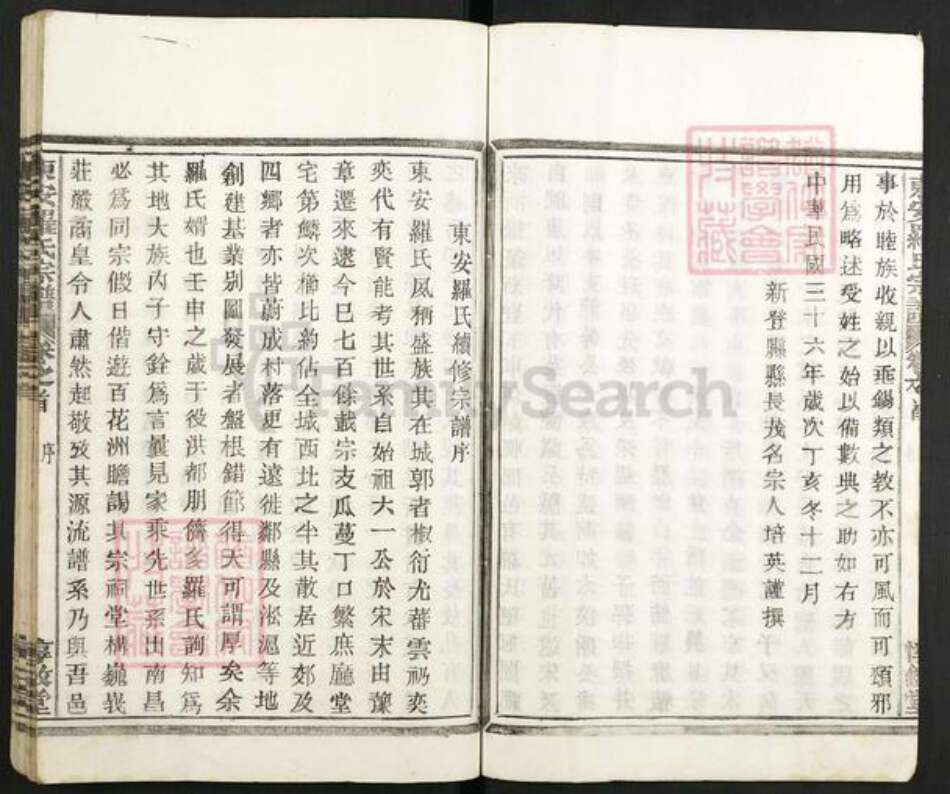 事於睦族收親以垂錫類之教不亦可風而可頌邪
用爲略述受姓之始以備數典之助如右方
中華民國三十六年歲次丁亥冬十二月
新登縣縣長茂名宗人培英謹撰
東安羅氏續修宗譜序
東安羅氏夙稱盛族其在城郭者椒衍尤蕃雲礽奕
奕代有賢能考其世系自始祖大一公於宋末由豫
章遷來逮今巳七百餘載宗支瓜蔓丁口繁庶廳堂
宅第鱗次櫛比約佔全城西北之半其散居近郊及
四鄉者亦皆蔚成村落更有遠徙鄰縣及淞滬等地
創建基業别圖發展者盤根錯節得天可謂厚矣余
羅氏婿也壬申之歲于役洪都朋儕多羅氏詢知爲
其地大族丙子守銓爲言曩見家乘先世系出南昌
必爲同宗假日偕遊百花洲瞻謁其宗祠堂構巍峩
莊嚴裔皇令人肅然起敬攷其源流譜系乃與吾邑
東安羅氏宗譜 卷之首 序
惇敘堂
FamilySearch